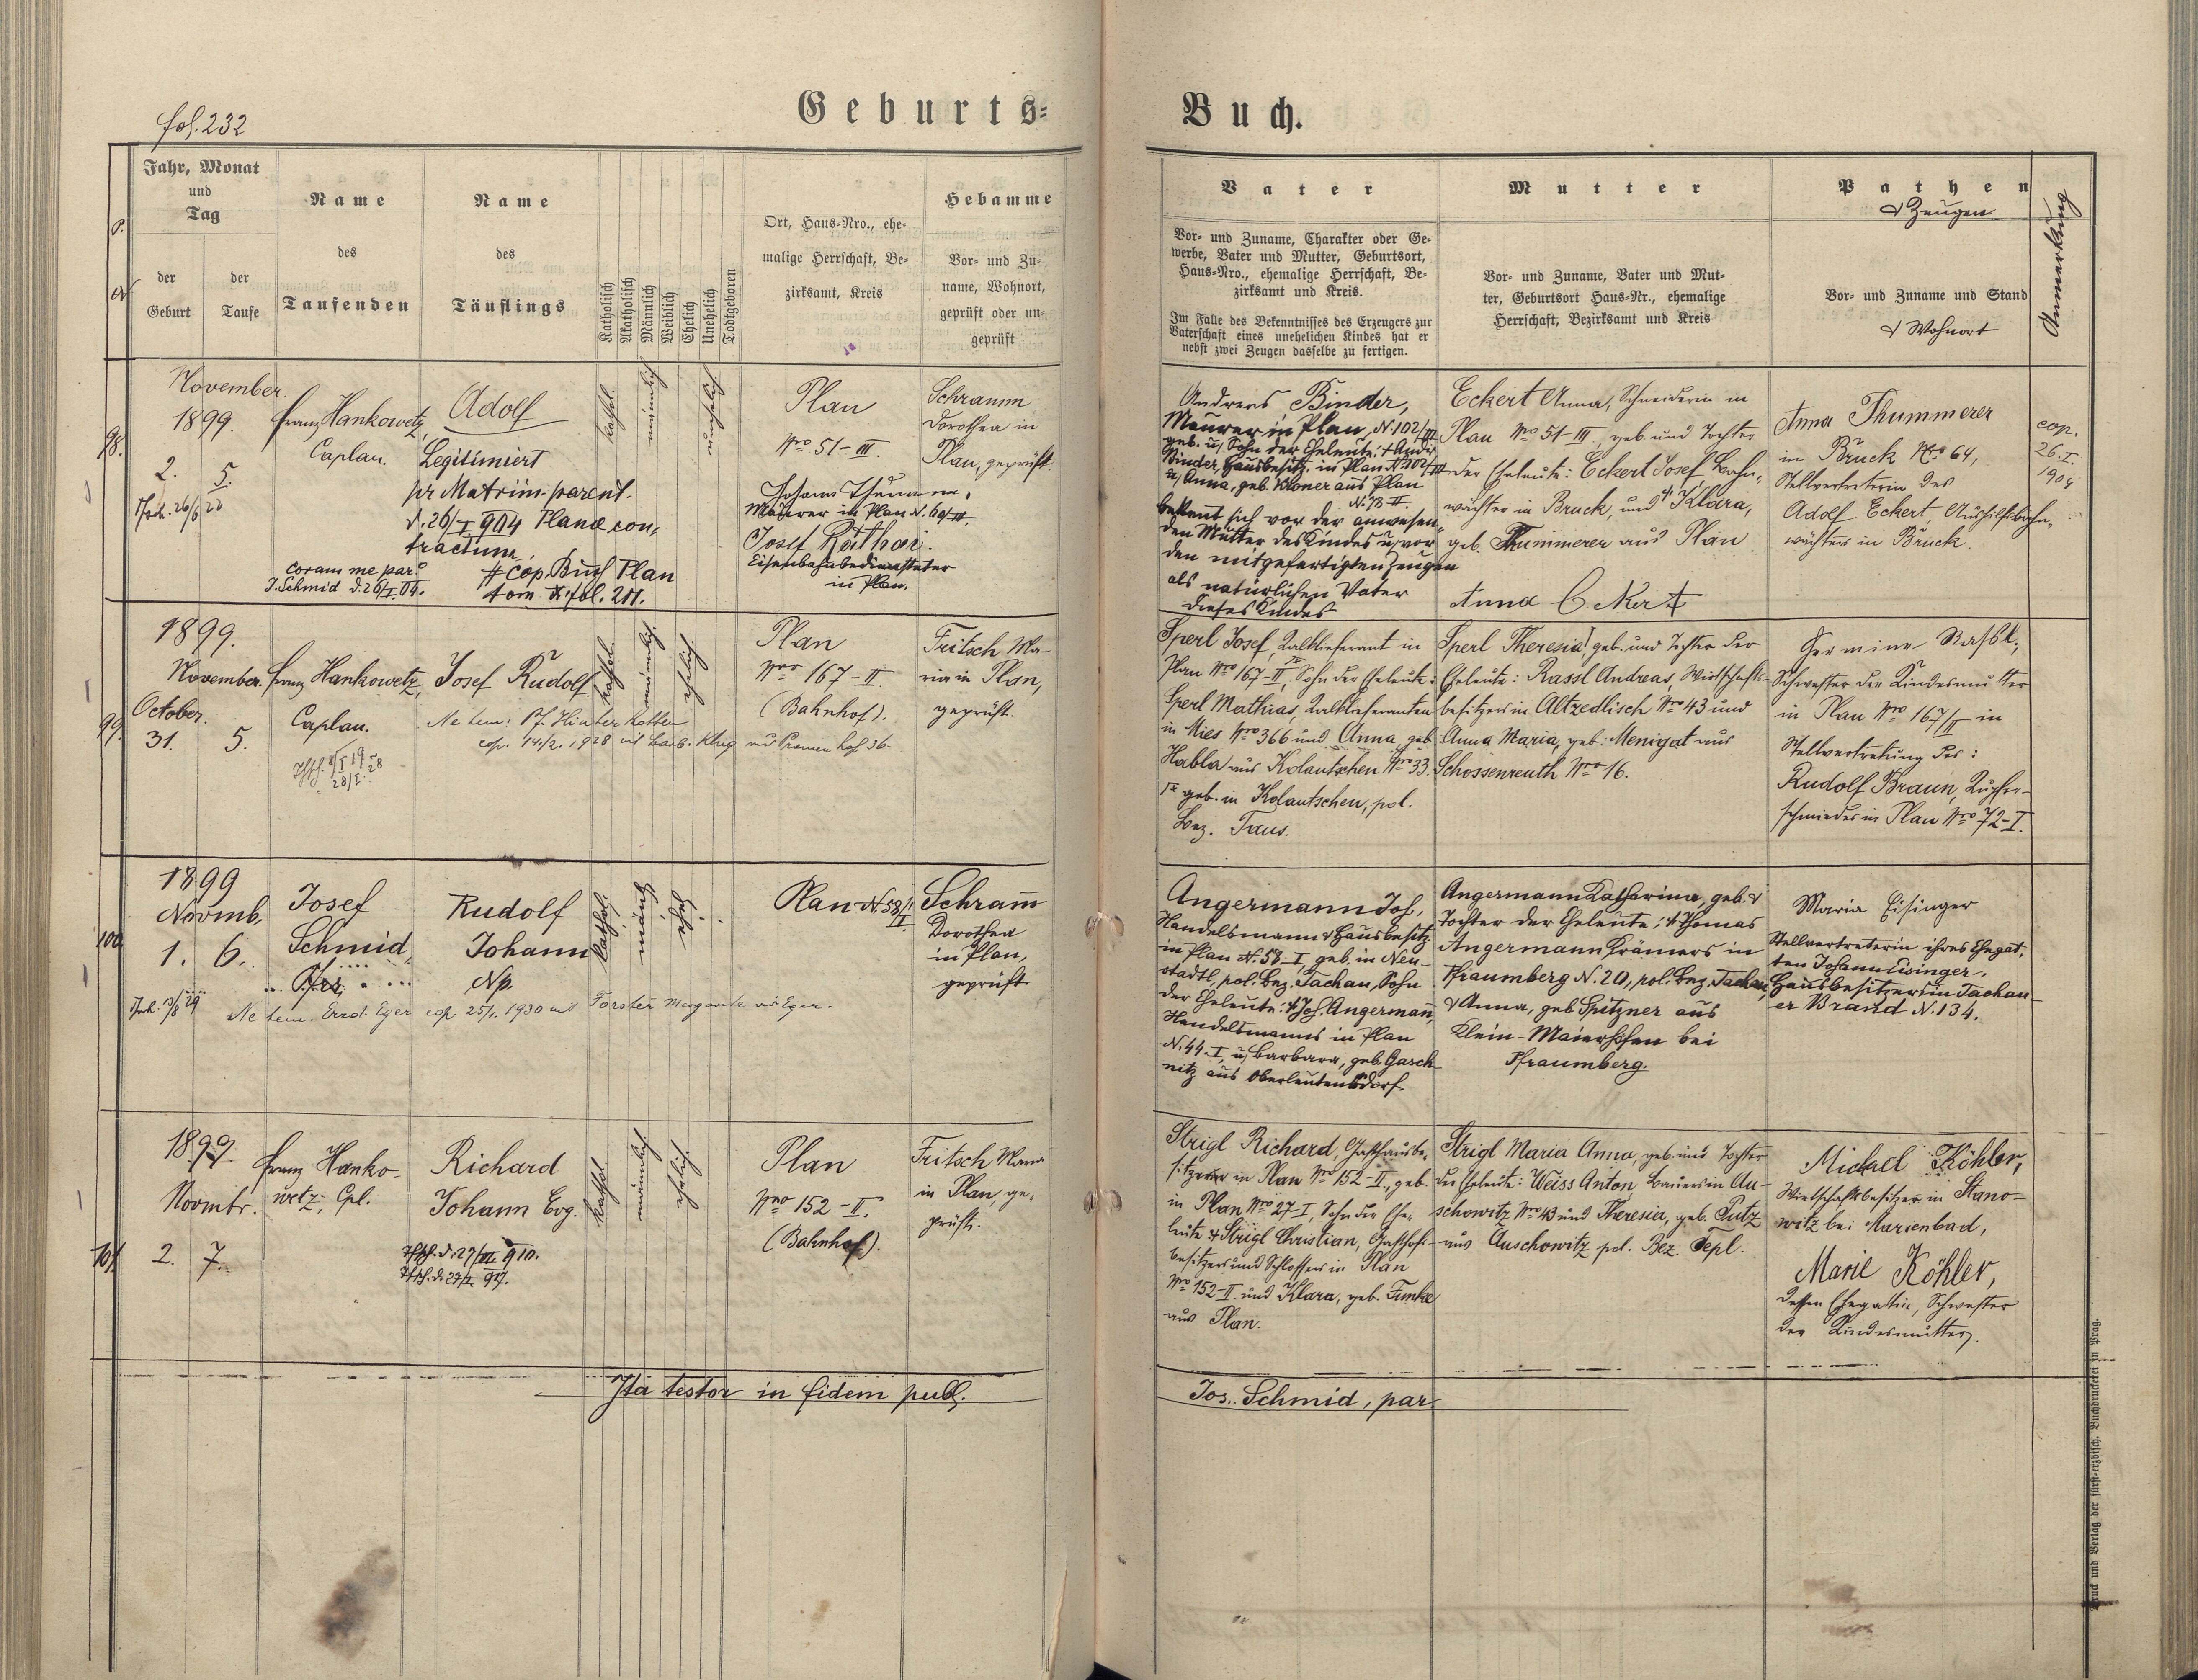 fol. 232
Geburts-
Buch.
Jahr, Monat
und
Tag
der
Geburt
der
Taufe
Name
des
Taufenden
Name
des
Täuflings
Katholisch
Akatholisch
Männlich
Weiblich
Ehelich
Unehelich
Todtgeboren
Ort, Haus-Nro., ehe-
malige Herrschaft, Be-
zirksamt, Kreis
Hebamme
Vor- und Zu-
name, Wohnort,
geprüft oder un-
geprüft
Vater
Vor- und Zuname, Charakter oder Ge-
werbe, Vater und Mutter, Geburtsort,
Haus-Nro., ehemalige Herrschaft, Be-
zirksamt und Kreis.
Im Falle des Bekenntnisses des Erzeugers zur
Vaterschaft eines unehelichen Kindes hat er
nebst zwei Zeugen dasselbe zu fertigen.
Mutter
Vor- und Zuname, Vater und Mut-
ter, Geburtsort Haus-Nr., ehemalige
Herrschaft, Bezirksamt und Kreis
Pathen
& Zeugen
Vor- und Zuname und Stand
& Wohnort
Anmerkung
98.
November
1899.
2. 5.
Franz Hankowetz,
Caplan.
coram me par.
J. Schmid d. 26/I.04.
Adolf
Legitimiert
pr Matrim. parent.
d. 26/I 904 Planae con-
tractum,
# cop. Buch Plan
tom IX. fol. 211.
kathol.
männlich
unehelich
Plan
Nro 51-III.
Johann Thumann,
Maurer in Plan N. 60/III.
Josef Rathai.
Eisenbahnbediensteter
in Plan.
Schramm
Dorothea in
Plan, geprüft.
Andreas Binder,
Maurer in Plan, N. 102/III
geb. u. Sohn der Eheleute: † Andr.
Binder, Hausbesitz. in Plan N. 102/III
u. Anna, geb. Kloner aus Plan
N. 73-II.
bekennt sich vor der anwesen-
den Mutter des Kindes u. vor
den mitgefertigten Zeugen
als natürlichen Vater
dieses Kindes
Eckert Anna, Schneiderin in
Plan Nro 51-III, geb. und Tochter
der Eheleute: Eckert Josef, Bahn-
wächter in Bruck, und † Klara,
geb. Thummerer aus Plan
Anna Eckert
Anna Thummerer
in Bruck Nro 64,
Stellvertreterin des
Adolf Eckert, Aushilfsbahn-
wächters in Bruck.
cop.
26. I.
1904
99.
1899.
November.
October.
31. 5.
Franz Hankowetz,
Caplan.
Josef Rudolf
cop. 14/2. 1928 mit Barb. Klug
kathol.
männlich
ehelich.
Plan
Nro 167-II
(Bahnhof).
Fritsch Ma-
ria in Plan,
geprüft.
Sperl Josef, Kalklieferant in
Plan Nro 167-II, Sohn der Eheleute:
Sperl Mathias, Kalklieferanten
in Mies Nro 366 und Anna, geb.
Habla aus Kolautschen Nro 33.
geb. in Kolautschen, pol.
Bez. Taus.
Sperl Theresia, geb. und Tochter der
Eheleute: Rassl Andreas, Wirtschafts-
besitzers in Altzedlisch Nro 43 und
Anna Maria, geb. Menigat aus
Schossenreuth Nro 16.
Hermine Rassl,
Schwester der Kindesmutter
in Plan Nro 167/II in
Stellvertretung des:
Rudolf Braun, Kupfer-
schmiedes in Plan Nro 72-I.
100.
1899
Novmb.
1. 6.
Josef
Schmid,
Rudolf
Johann
Np.
cop. 25/1. 1930 mit Förster Margarete aus Eger.
kathol.
männl.
ehel.
Plan N. 58/I
Schram̅
Dorothea
in Plan,
geprüft.
Angermann Joh,
Handelsmann & Hausbesitz.
in Plan N. 58-I, geb. in Neu-
stadtl, pol. Bez. Tachau, Sohn
der Eheleute: † Joh. Angermann,
Handelsmanns in Plan
N. 44-I, u. Barbara, geb. Gasch-
nitz aus Oberleutensdorf.
Angermann Katharina, geb. &
Tochter der Eheleute: † Thomas
Angermann Krämers in
Pfraumberg N. 20, pol. Bez. Tachau,
& Anna, geb. Spitzner aus
Klein-Maierhöfen bei
Pfraumberg.
Maria Eisinger
Stellvertreterin ihres Ehegat-
ten Johann Eisinger,
Hausbesitzers in Tachau-
er Brand N. 134.
101.
1899.
Novmbr.
2. 7.
Franz Hanko-
wetz, Cpl.
Richard
Johann Evg.
kathol.
männlich
ehelich.
Plan
Nro 152-II.
(Bahnhof).
Fritsch Maria
in Plan, ge-
prüft.
Strigl Richard, Gasthausbe-
sitzer in Plan Nro 152-II, geb.
in Plan Nro 27-I, Sohn der Ehe-
leute † Strigl Christian, Gasthofs-
besitzers und Schlossers in Plan
Nro 152-II. und Klara, geb. Funke
aus Plan.
Strigl Maria Anna, geb. und Tochter
der Eheleute: Weiss Anton, Bauers in Au-
schowitz Nro 43 und Theresia, geb. Putz
aus Auschowitz pol. Bez. Tepl.
Michael Köhler,
Wirtschaftsbesitzer in Stano-
witz bei Marienbad,
Marie Köhler,
dessen Ehegattin, Schwester
der Kindesmutter.
Ita testor in fidem publ.
Jos. Schmid, par.
Druck und Verlag der fürst-erzbisch. Buchdruckerei in Prag.